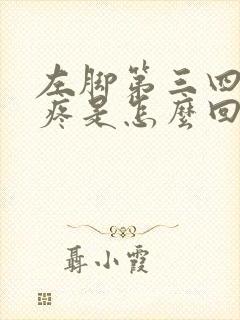 左脚第三四
疼是怎麼回
聶小霞